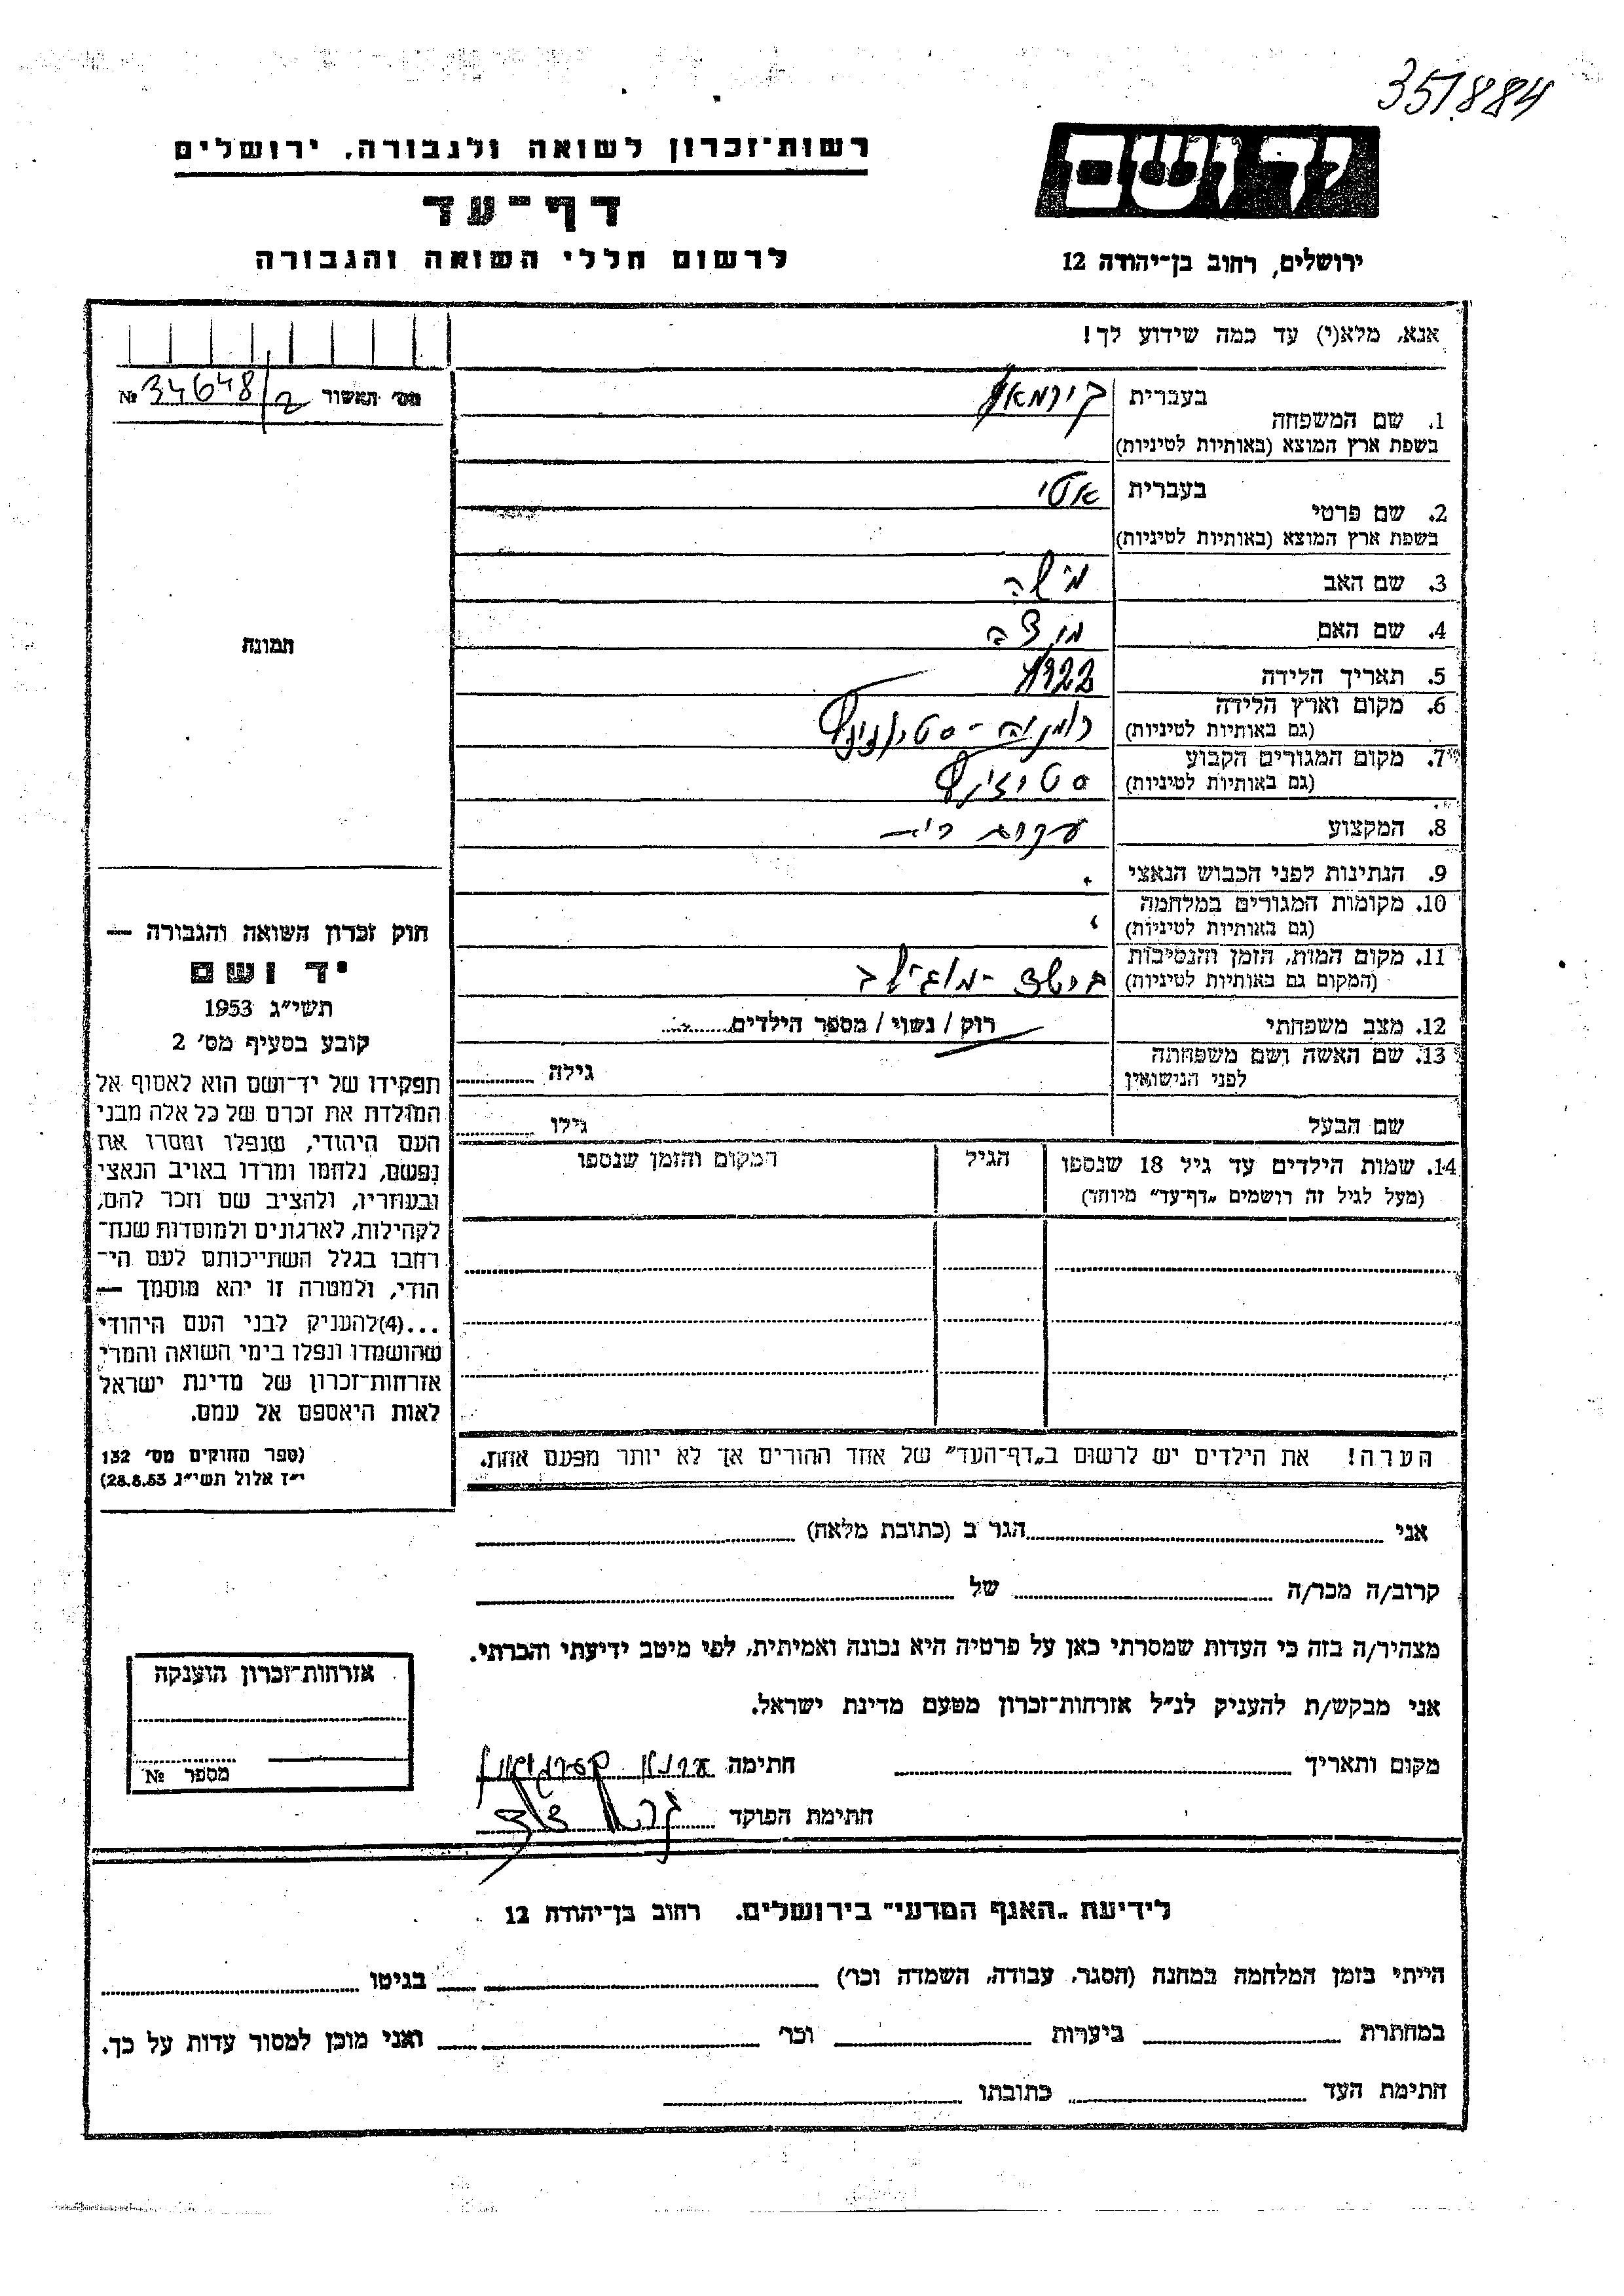 351884
רשות־זכרון לשואה ולגבורה, ירושלים
יד ושם
דף־עד
לרשום חללי השואה והגבורה
ירושלים, רחוב בן־יהודה 12
אנא, מלא(י) עד כמה שידוע לך!
מס׳ תאשור 34648/2 №
1. שם המשפחה
בעברית
בשפת ארץ המוצא (באותיות לטיניות)
2. שם פרטי
בעברית אטי
בשפת ארץ המוצא (באותיות לטיניות)
3. שם האב משה
4. שם האם
5. תאריך הלידה 1922
6. מקום וארץ הלידה
(גם באותיות לטיניות)
7. מקום המגורים הקבוע
(גם באותיות לטיניות)
8. המקצוע עקרת בית
9. הנתינות לפני הכבוש הנאצי
10. מקומות המגורים במלחמה
(גם באותיות לטיניות)
11. מקום המות, הזמן והנסיבות
(המקום גם באותיות לטיניות)
12. מצב משפחתי רוק / נשוי / מספר הילדים
13. שם האשה ושם משפחתה
לפני הנישואין גילה
שם הבעל גילו
14. שמות הילדים עד גיל 18 שנספו הגיל המקום והזמן שנספו
(מעל לגיל זה רושמים „דף־עד״ מיוחד)
הערה! את הילדים יש לרשום ב„דף־העד״ של אחד ההורים אך לא יותר מפעם אחת.
תמונה
חוק זכרון השואה והגבורה —
יד ושם
תשי״ג 1953
קובע בסעיף מס׳ 2
תפקידו של יד־ושם הוא לאסוף אל
המולדת את זכרם של כל אלה מבני
העם היהודי, שנפלו ומסרו את
נפשם, נלחמו ומרדו באויב הנאצי
ובעוזריו, ולהציב שם וזכר להם,
לקהילות, לארגונים ולמוסדות שנח־
רחבו בגלל השתייכותם לעם הי־
הודי, ולמטרה זו יהא מוסמך —
...(4)להעניק לבני העם היהודי
שהושמדו ונפלו בימי השואה והמרי
אזרחות־זכרון של מדינת ישראל
לאות היאספם אל עמם.
(ספר החוקים מס׳ 132
י״ז אלול תשי״ג 28.8.53)
אני הגר ב (כתובת מלאה)
קרוב/ה מכר/ה של
מצהיר/ה בזה כי העדות שמסרתי כאן על פרטיה היא נכונה ואמיתית, לפי מיטב ידיעתי והכרתי.
אני מבקש/ת להעניק לנ״ל אזרחות־זכרון מטעם מדינת ישראל.
מקום ותאריך חתימה
חתימת הפוקד
אזרחות־זכרון הוענקה
מספר №
לידיעת „האגף המדעי״ בירושלים. רחוב בן־יהודה 12
הייתי בזמן המלחמה במחנה (הסגר, עבודה, השמדה וכו׳) בגיטו
במחתרת ביערות וכו׳ ואני מוכן למסור עדות על כך.
חתימת העד כתובתו